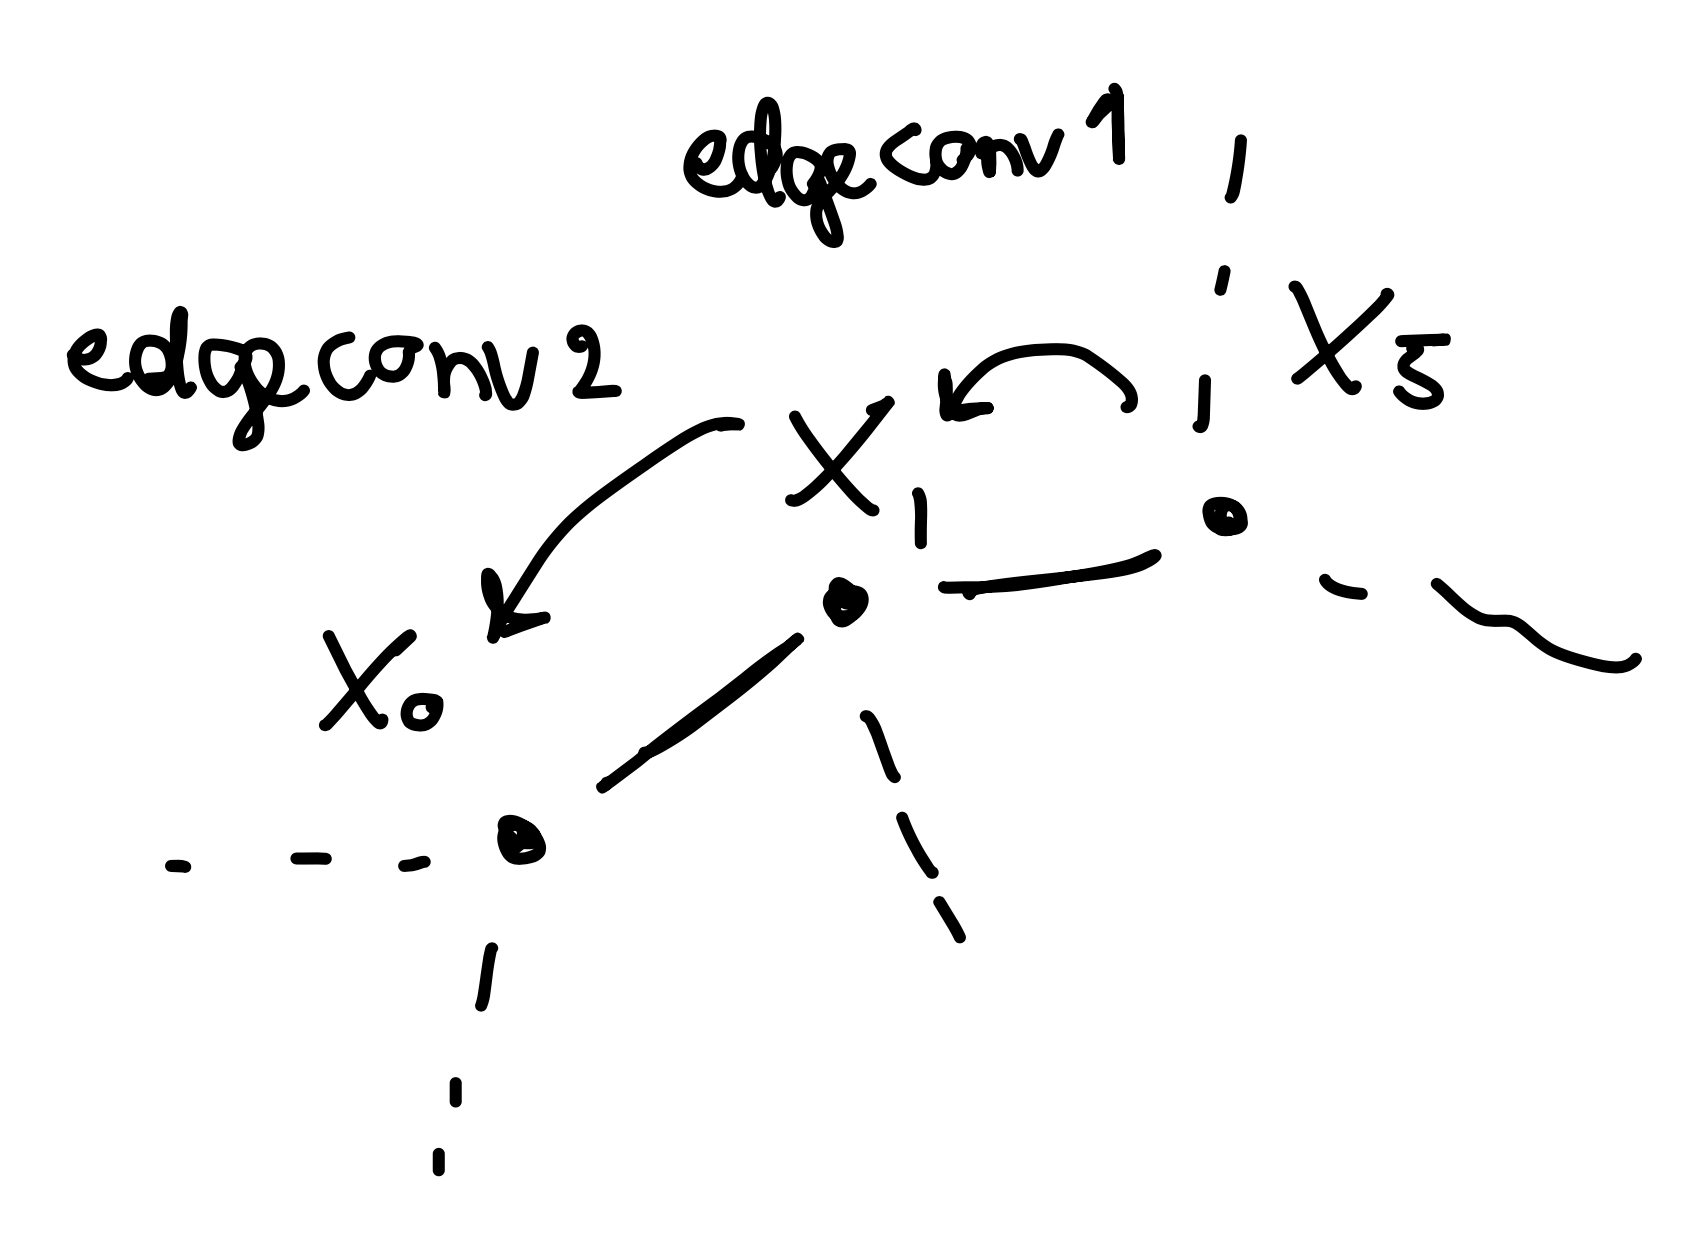 edgeconv1
edgeconv2
X₅
X₁
X₀